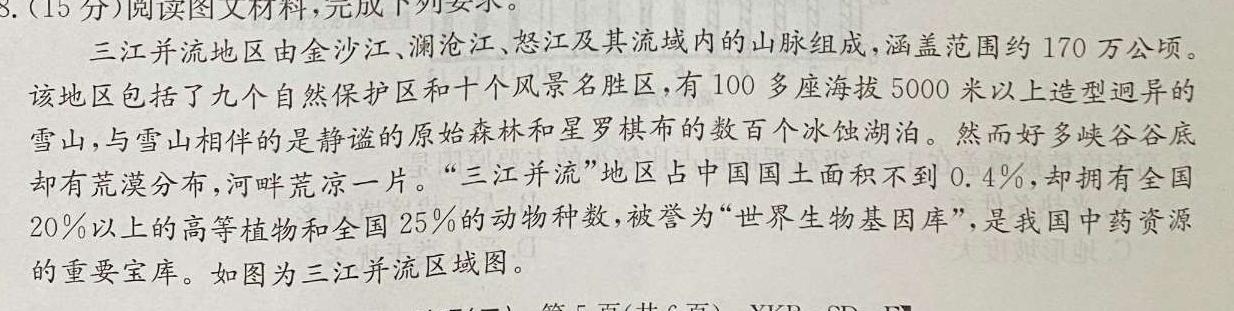 8.(15分)阅读图文材料,完成下列要求。
三江并流地区由金沙江、澜沧江、怒江及其流域内的山脉组成,涵盖范围约170万公顷。
该地区包括了九个自然保护区和十个风景名胜区,有100多座海拔5000米以上造型迥异的
雪山,与雪山相伴的是静谧的原始森林和星罗棋布的数百个冰蚀湖泊。然而好多峡谷谷底
却有荒漠分布,河畔荒凉一片。“三江并流”地区占中国国土面积不到0.4%,却拥有全国
20%以上的高等植物和全国25%的动物种数,被誉为“世界生物基因库”,是我国中药资源
的重要宝库。如图为三江并流区域图。
第5页(共6页)